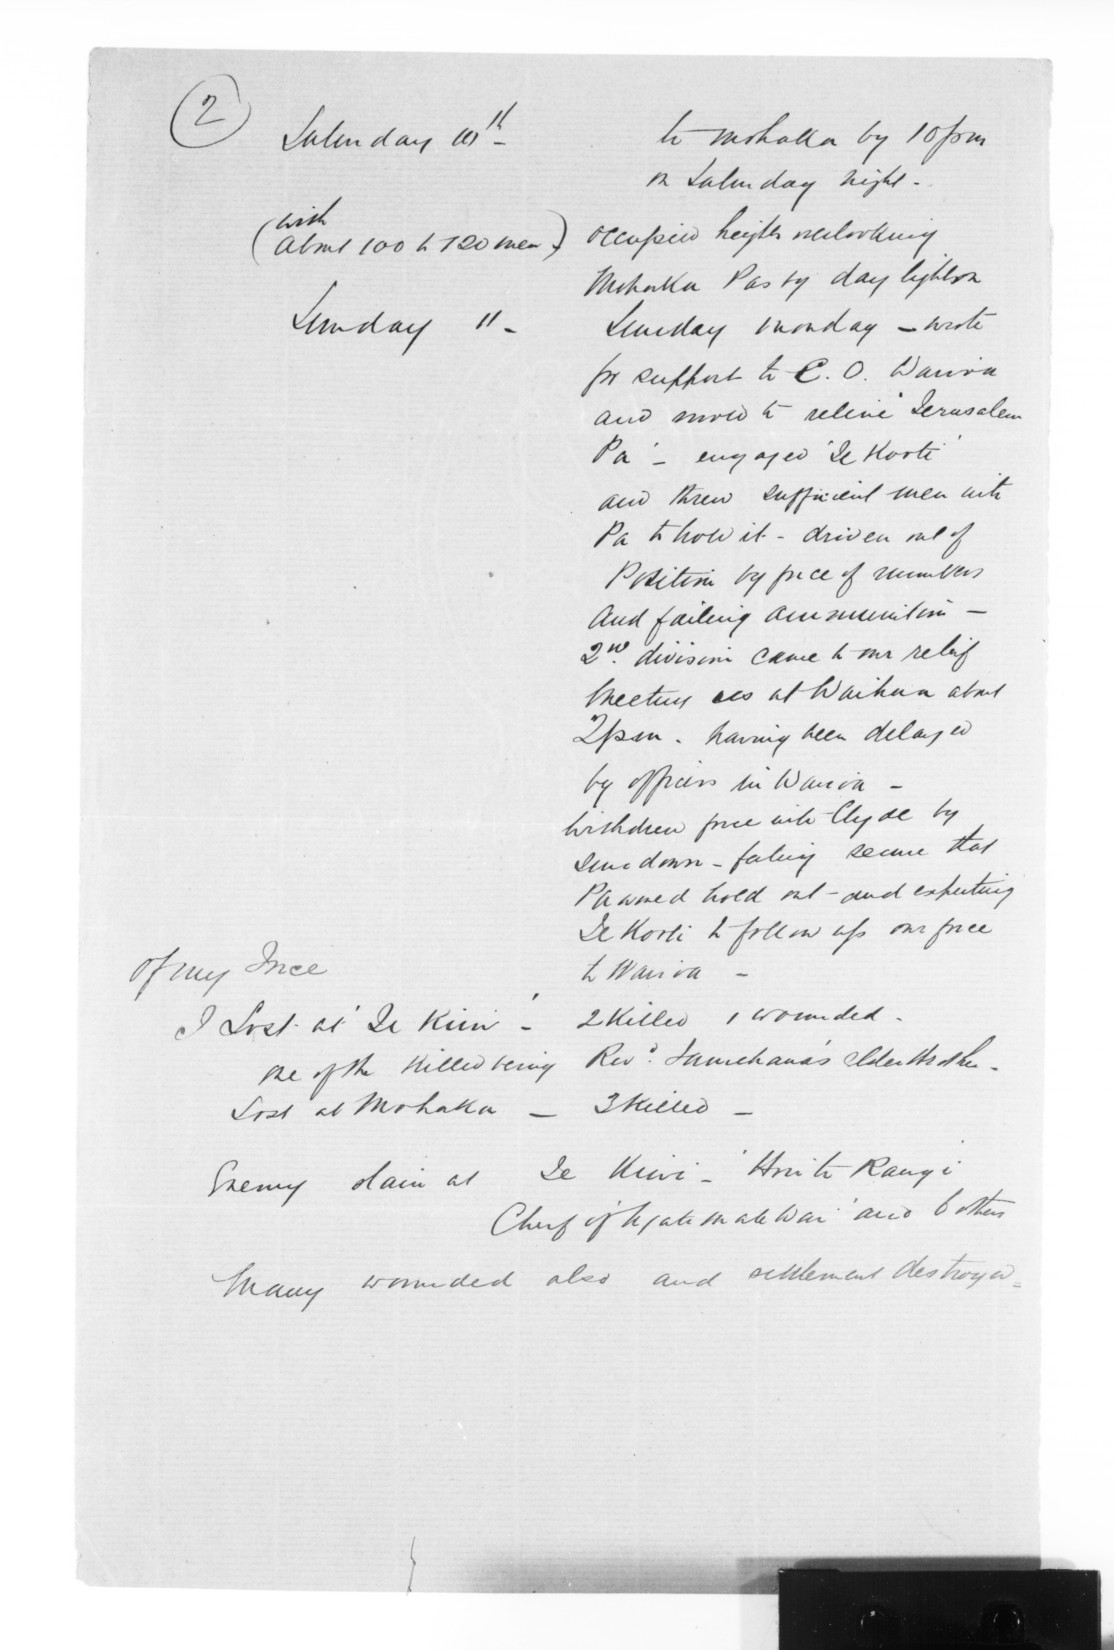 2
Saturday 10th - to Mohaka by 10 pm
on Saturday night -
(with
About 100 to 120 men -) occupied heights overlooking
Mohaka Pas by day light on
Sunday 11 - Sunday monday - wrote
for support to C. O. Wairoa
and moved to relieve 'Jerusalem
Pa' - engaged 'Te Kooti'
and threw sufficient men into
Pa to hold it - driven out of
Position by force of numbers
and failing ammunition -
2nd. division came to our relief
meeting us at Waihua about
2 pm - having been delayed
by officers in Wairoa -
Withdrew force into Clyde by
sundown - feeling secure that
Pa would hold out - and expecting
Te Kooti to follow up our force
to Wairoa -
of my Force
I Lost at 'Te Kiwi' - 2 Killed 1 wounded -
one of the Killed being Revd. Tamehana's elder brother -
Lost at Mohaka - 3 Killed -
Enemy slain at Te Kiwi - 'Hori te Rangi
Chief of Ngatimatewai' and 6 others
Many wounded also and settlement destroyed -